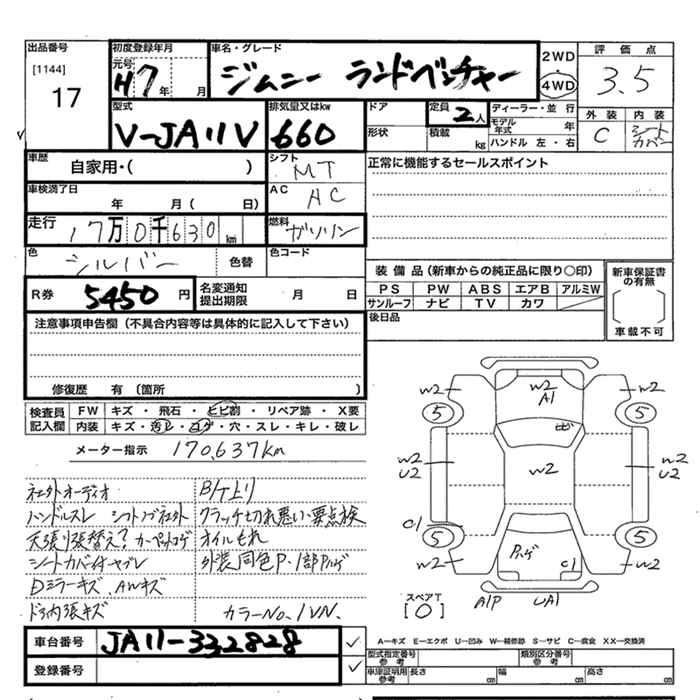 出品番号
[1144]
17
初度登録年月
元号 H7 年 月
車名・グレード
ジムニー ランドベンチャー
2WD
・
4WD
評価点
3.5
型式
V-JA11V
排気量又はkw
660
ドア
形状
定員 2人
積載 kg
ディーラー・並行
モデル年式 年
ハンドル 左・右
外装 内装
C シートカバー
車歴
自家用・( )
シフト
MT
正常に機能するセールスポイント
車検満了日
年 月 ( 日)
AC
AC
走行 17万0千630km
燃料
ガソリン
色
シルバー 色替
色コード
R券 5450円
名変通知
提出期限 月 日
装備品(新車からの純正品に限り○印)
PS PW ABS エアB アルミW
サンルーフ ナビ TV カワ
新車保証書の有無
[ ]
車載不可
後日品
注意事項申告欄(不具合内容等は具体的に記入して下さい)
修復歴 有(箇所 )
検査員記入欄
FW キズ・飛石・ヒビ割・リペア跡・X要
内装 キズ・汚レ・コゲ・穴・スレ・キレ・破レ
メーター指示 170,637km
社外オーディオ
ハンドルスレ シフトノブ社外
天張り張替え? カーペットコゲ
シートカバー付ヤブレ
Dミラーキズ、AWキズ
ドア内張キズ
B/T上り
クラッチ切れ悪い・要点検
オイルもれ
外装同色P・1部Pハゲ
カラーNo. 1VN.
W2 W2 W2
A1
5 5
ヒビ
W2 W2 W2
U2 U2
C1
5 5
Pハゲ C1
W2 W2
スペアT
[0]
A1P UA1
車台番号 JA11-332828
登録番号
A-キズ E-エクボ U-凹み W-補修跡 S-サビ C-腐食 XX-交換済
型式指定番号
参考
類別区分番号
参考
車庫証明用
参考
長さ cm 幅 cm 高さ cm